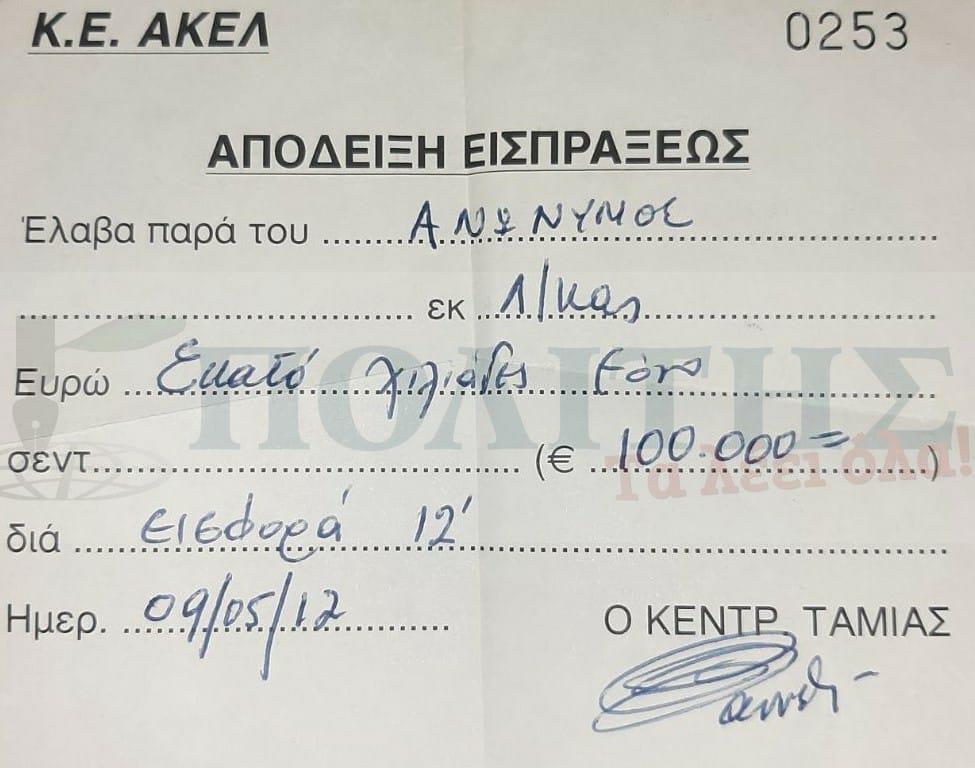 Κ.Ε. ΑΚΕΛ 0253
ΑΠΟΔΕΙΞΗ ΕΙΣΠΡΑΞΕΩΣ
Έλαβα παρά του ΑΝΩΝΥΜΟΣ
εκ Λ/κας
Ευρώ Εκατό χιλιάδες Ευρώ
ΠΟΛΙΤΗΣ
σεντ. (€ 100.000=)
Τα λέει όλα!
διά εισφορά 12'
Ημερ. 09/05/12 Ο ΚΕΝΤΡ. ΤΑΜΙΑΣ